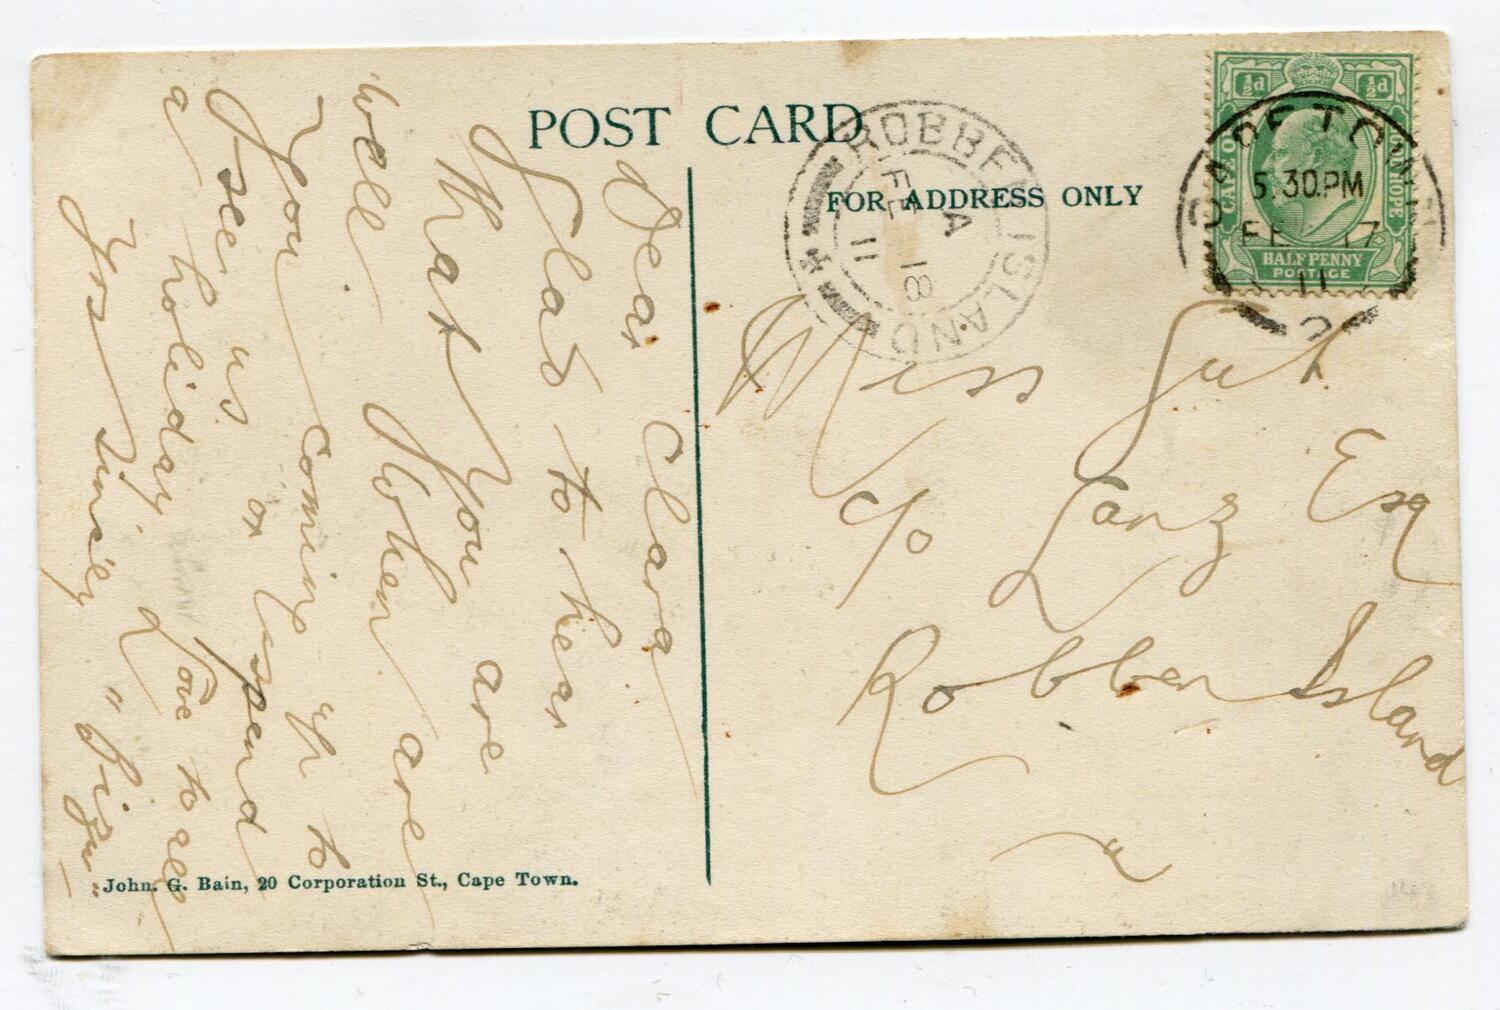 POST CARD
FOR ADDRESS ONLY
CAPE OF GOOD HOPE
½d ½d
HALFPENNY
POSTAGE
CAPE TOWN
5.30.PM
FE 17
11
ROBBEN ISLAND
A
FE 18
11
Dear Clara
Glad to hear
that you are
well. When are
you coming up to
see us or spend
a holiday Love to all
Yrs sincely
Miss
c/o Lanz Esq
Robben Island
John. G. Bain, 20 Corporation St., Cape Town.